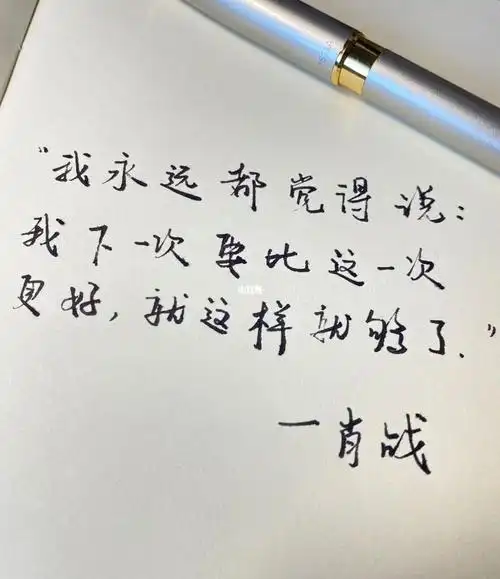 “我永远都觉得说：
我下一次要比这一次
更好，就这样就够了.”
一肖战